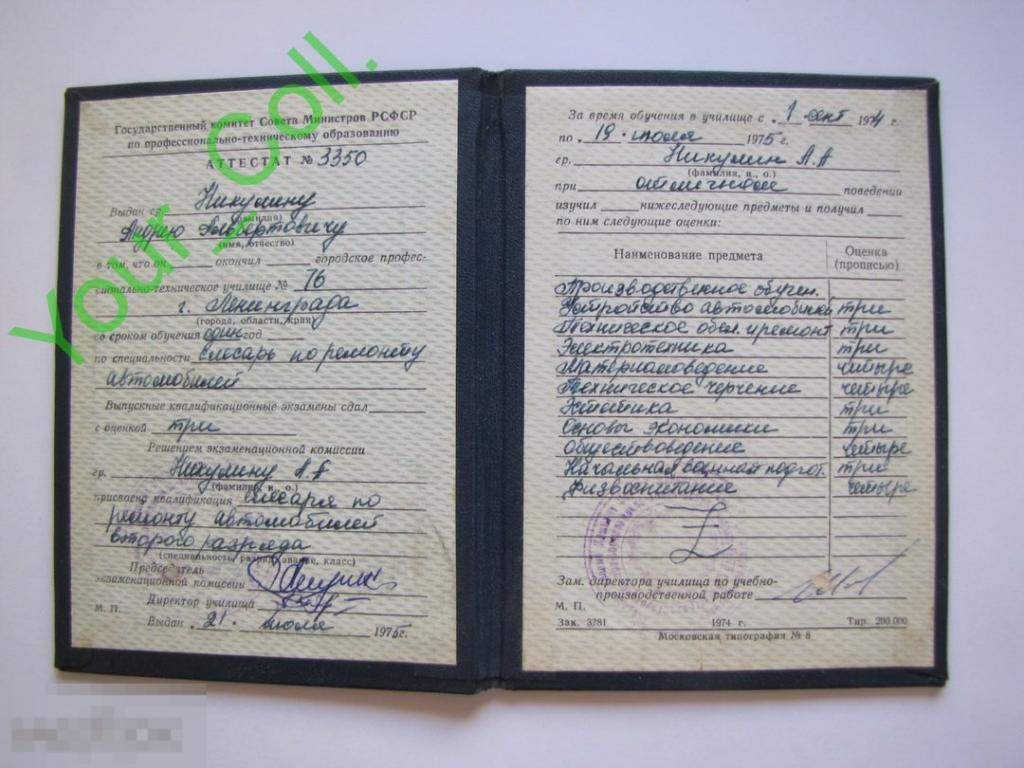 Государственный комитет Совета Министров РСФСР
по профессионально-техническому образованию
АТТЕСТАТ № 3350
Выдан гр. Никулину
(фамилия)
Андрею Альбертовичу
(имя, отчество)
в том, что он окончил городское профес-
сионально-техническое училище № 76
г. Ленинграда
(города, области, края)
со сроком обучения один год
по специальности слесарь по ремонту
автомобилей
Выпускные квалификационные экзамены сдал
с оценкой три
Решением экзаменационной комиссии
гр. Никулину А.А
(фамилия, и., о.)
присвоена квалификация слесаря по
ремонту автомобилей
второго разряда
(специальность, разряд, звание, класс)
Председатель
экзаменационной комиссии
Директор училища
М. П.
Выдан „21" июля 1975г.
За время обучения в училище с „1 сент 1974 г.
по „19" июля 1975 г.
гр. Никулин А.А
(фамилия, и., о.)
при отличном поведении
изучил нижеследующие предметы и получил
по ним следующие оценки:
Наименование предмета Оценка (прописью)
Производственное обучен.
Устройство автомобилей три
Техническое обсл. и ремонт три
Электротехника три
Материаловедение четыре
Техническое черчение четыре
Эстетика три
Основы экономики три
Обществоведение четыре
Начальная военная подгот. три
Физвоспитание четыре
Зам. директора училища по учебно-
производственной работе
М. П.
Зак. 3781 1974 г. Тир. 200 000
Московская типография № 8
Your_Coll.